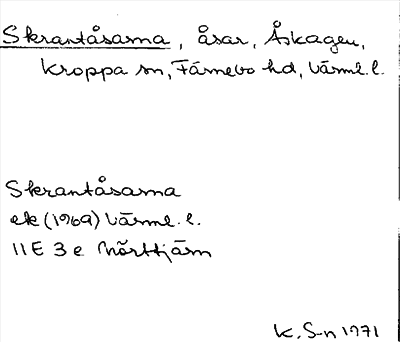 Skrantåsarna, åsar, Åskagen,
Kroppa sn, Färnebo hd, Värml. l.
Skrantåsarna
ek (1969) Värml. l.
11 E 3 e Mörttjärn
K. S-n 1971